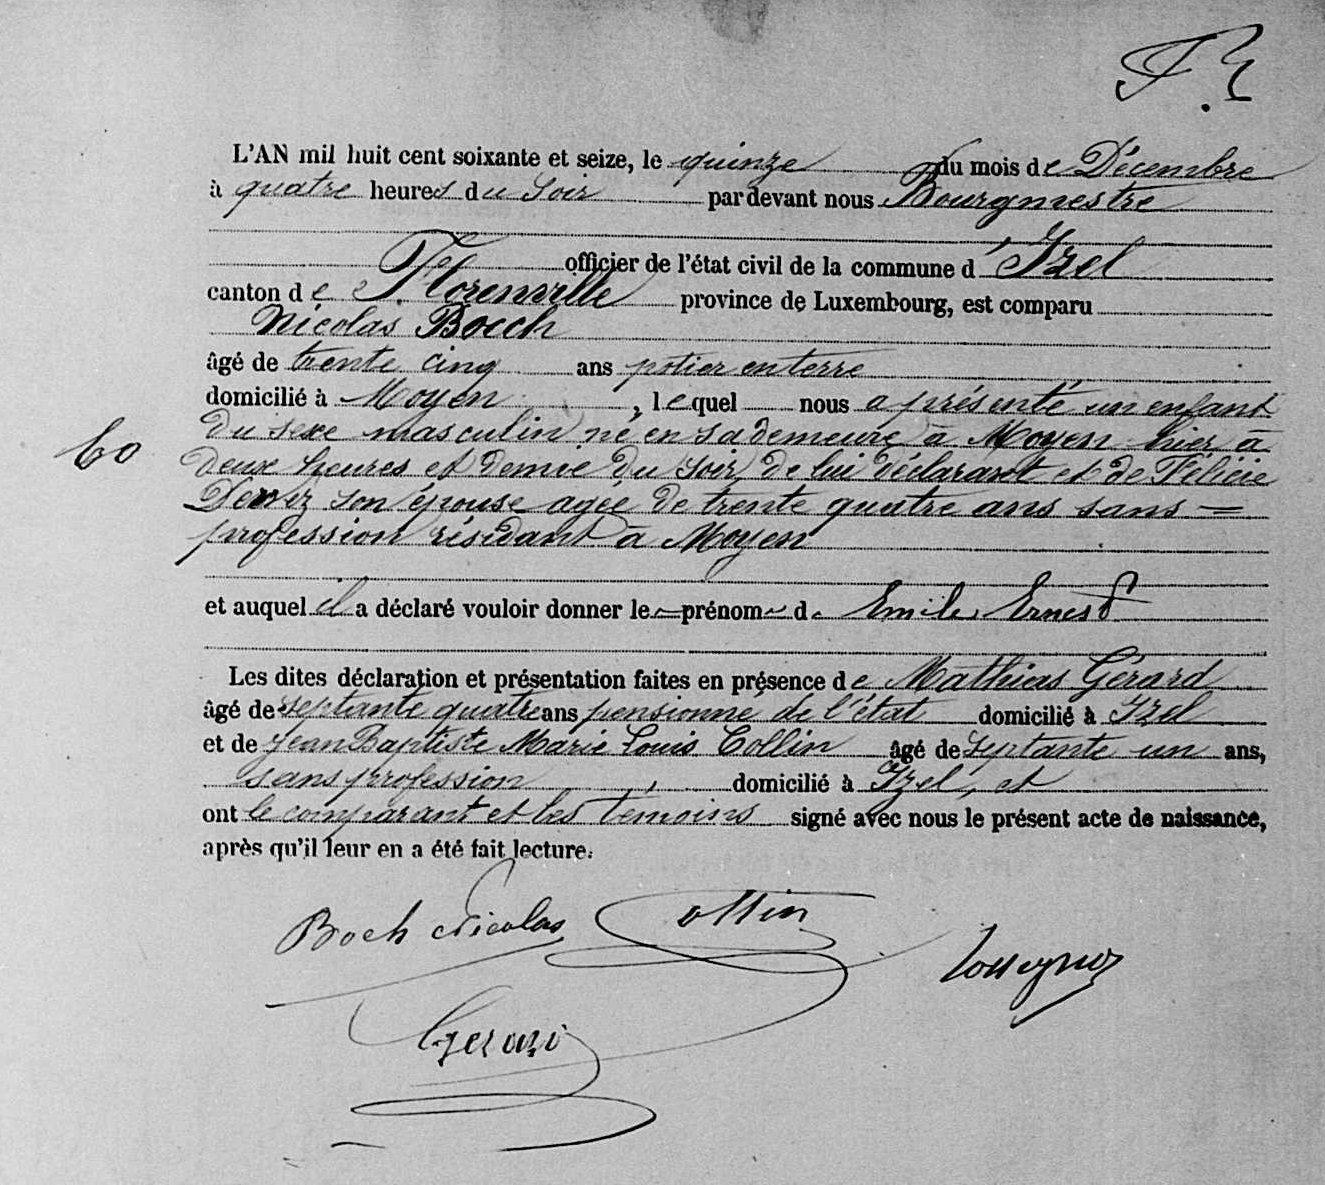 L'AN mil huit cent soixante et seize, le quinze du mois de Décembre
à quatre heures du Soir par devant nous Bourgmestre
officier de l'état civil de la commune d'Izel
canton de Florenville province de Luxembourg, est comparu
Nicolas Boch
âgé de trente cinq ans potier en terre
domicilié à Moyen, lequel nous a présenté un enfant
du sexe masculin né en sa demeure à Moyen hier à
deux heures et demie du soir, de lui déclarant et de Félicie
son épouse agée de trente quatre ans sans =
profession résidant à Moyen
60
et auquel il a déclaré vouloir donner le prénom d Emile Ernest
Les dites déclaration et présentation faites en présence de Mathias Gérard
âgé de septante quatre ans pensionné de l'état domicilié à Izel
et de Jean Baptiste Marie Louis Collin âgé de septante un ans,
sans profession, domicilié à Izel, et
ont le comparant et les témoins signé avec nous le présent acte de naissance,
après qu'il leur en a été fait lecture.
Boch Nicolas Collin
Gerard